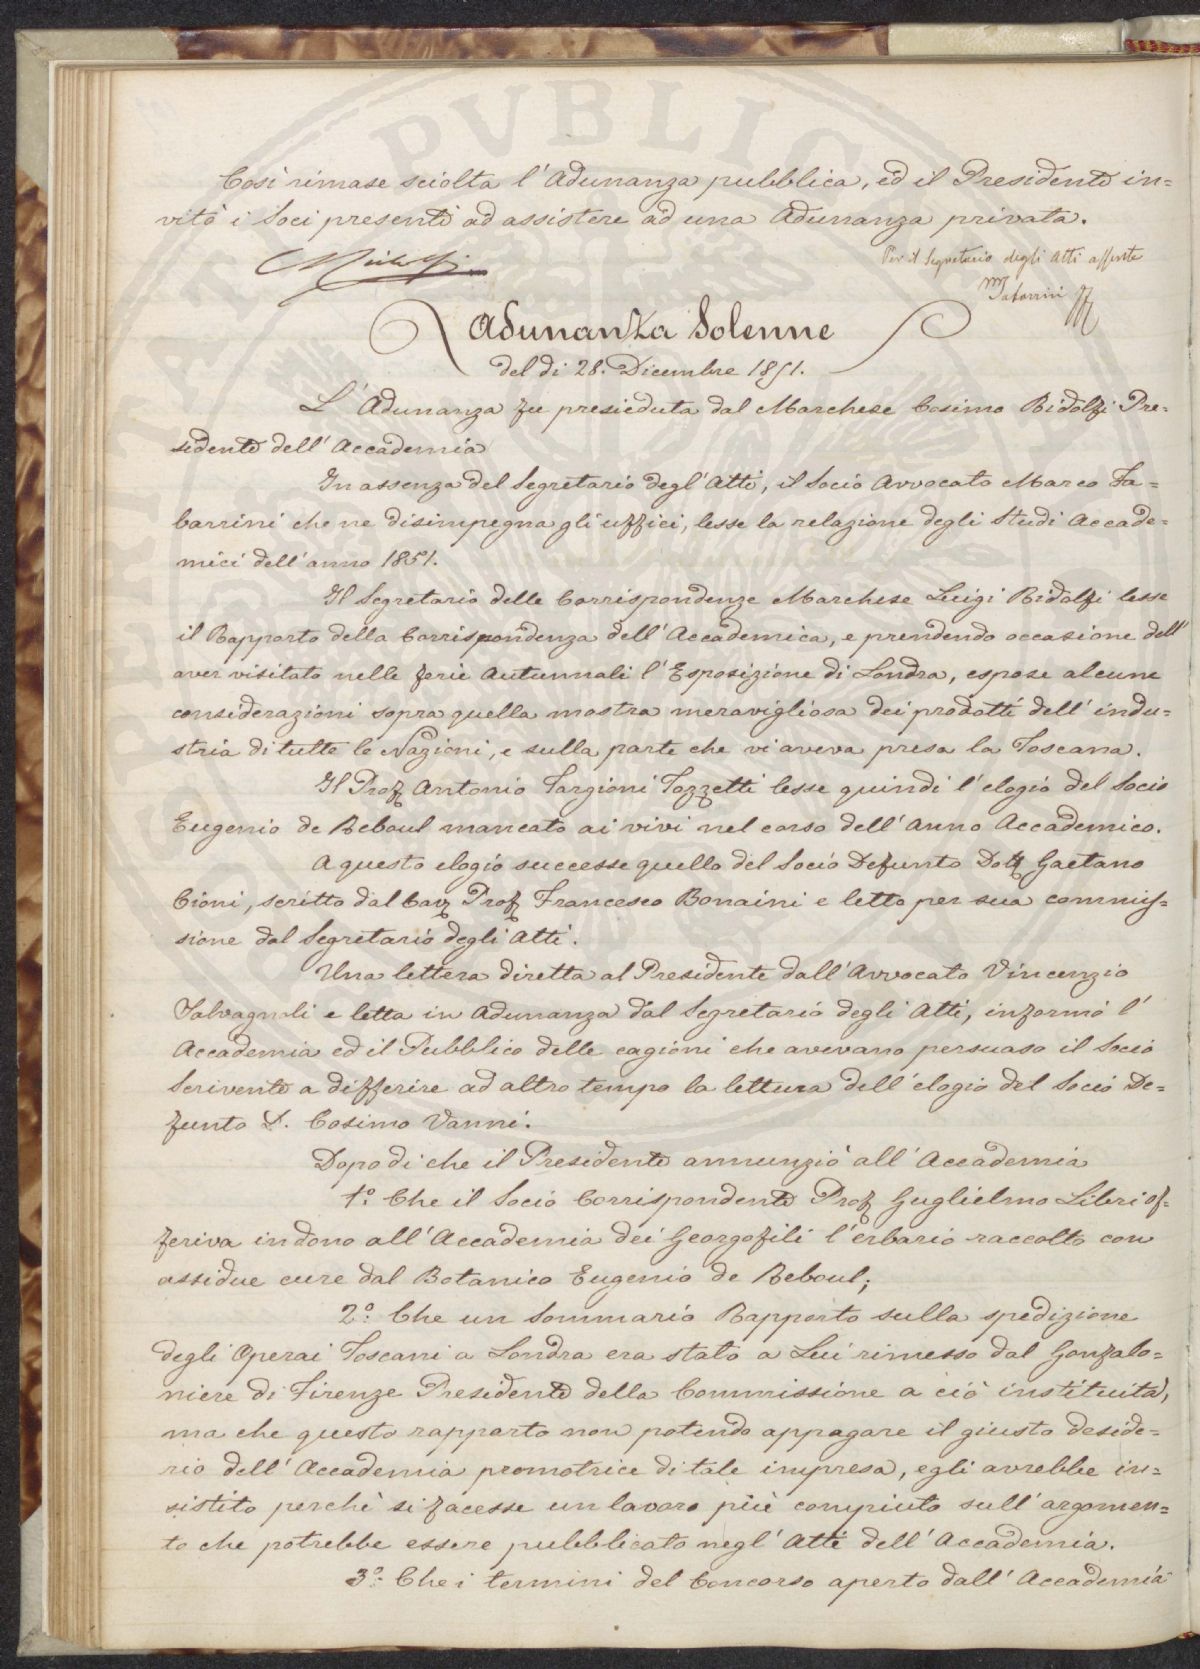 Così rimase sciolta l'Adunanza pubblica, ed il Presidente in=
vitò i Soci presenti ad assistere ad una Adunanza privata.
Per il Segretario degli Atti assente
MTabarrini
Adunanza Solenne
del di 28. Dicembre 1851.
L'Adunanza fu presieduta dal Marchese Cosimo Ridolfi Pre=
sidente dell'Accademia
In assenza del Segretario degl'Atti, il Socio Avvocato Marco Ta=
barrini che ne disimpegna gli uffici, lesse la relazione degli Studi Accade=
mici dell'anno 1851.
Il Segretario delle Corrispondenze Marchese Luigi Ridolfi lesse
il Rapporto della Corrispondenza dell'Accademica, e prendendo occasione dell'
aver visitato nelle ferie Autunnali l'Esposizione di Londra, espose alcune
considerazioni sopra quella mostra meravigliosa dei prodotti dell'indu=
stria di tutte le Nazioni, e sulla parte che vi aveva presa la Toscana.
Il Prof Antonio Targioni Tozzetti lesse quindi l'elogio del Socio
Eugenio de Reboul mancato ai vivi nel corso dell'Anno Accademico.
A questo elogio successe quello del Socio Defunto Dott Gaetano
Cioni, scritto dal Cav Prof Francesco Bonaini e letto per sua commis=
sione dal Segretario degli Atti.
Una lettera diretta al Presidente dall'Avvocato Vincenzio
Salvagnoli e letta in Adunanza dal Segretario degli Atti, informò l'
Accademia ed il Pubblico delle cagioni che avevano persuaso il Socio
Scrivente a differire ad altro tempo la lettura dell'elogio del Socio De=
funto S. Cosimo Vanni.
Dopo di che il Presidente annunziò all'Accademia
1.º Che il Socio Corrispondente Prof Guglielmo Libri of=
feriva in dono all'Accademia dei Georgofili l'erbario raccolto con
assidue cure dal Botanico Eugenio de Reboul;
2.º Che un Sommario Rapporto sulla spedizione
degli Operai Toscani a Londra era stato a Lui rimesso dal Gonfalo=
niere di Firenze Presidente della Commissione a ciò instituita,
ma che questo rapporto non potendo appagare il giusto deside=
rio dell'Accademia promotrice di tale impresa, egli avrebbe in=
sistito perchè si facesse un lavoro più compiuto sull'argomen=
to che potrebbe essere pubblicato negl'Atti dell'Accademia.
3.º Che i termini del Concorso aperto dall'Accademia